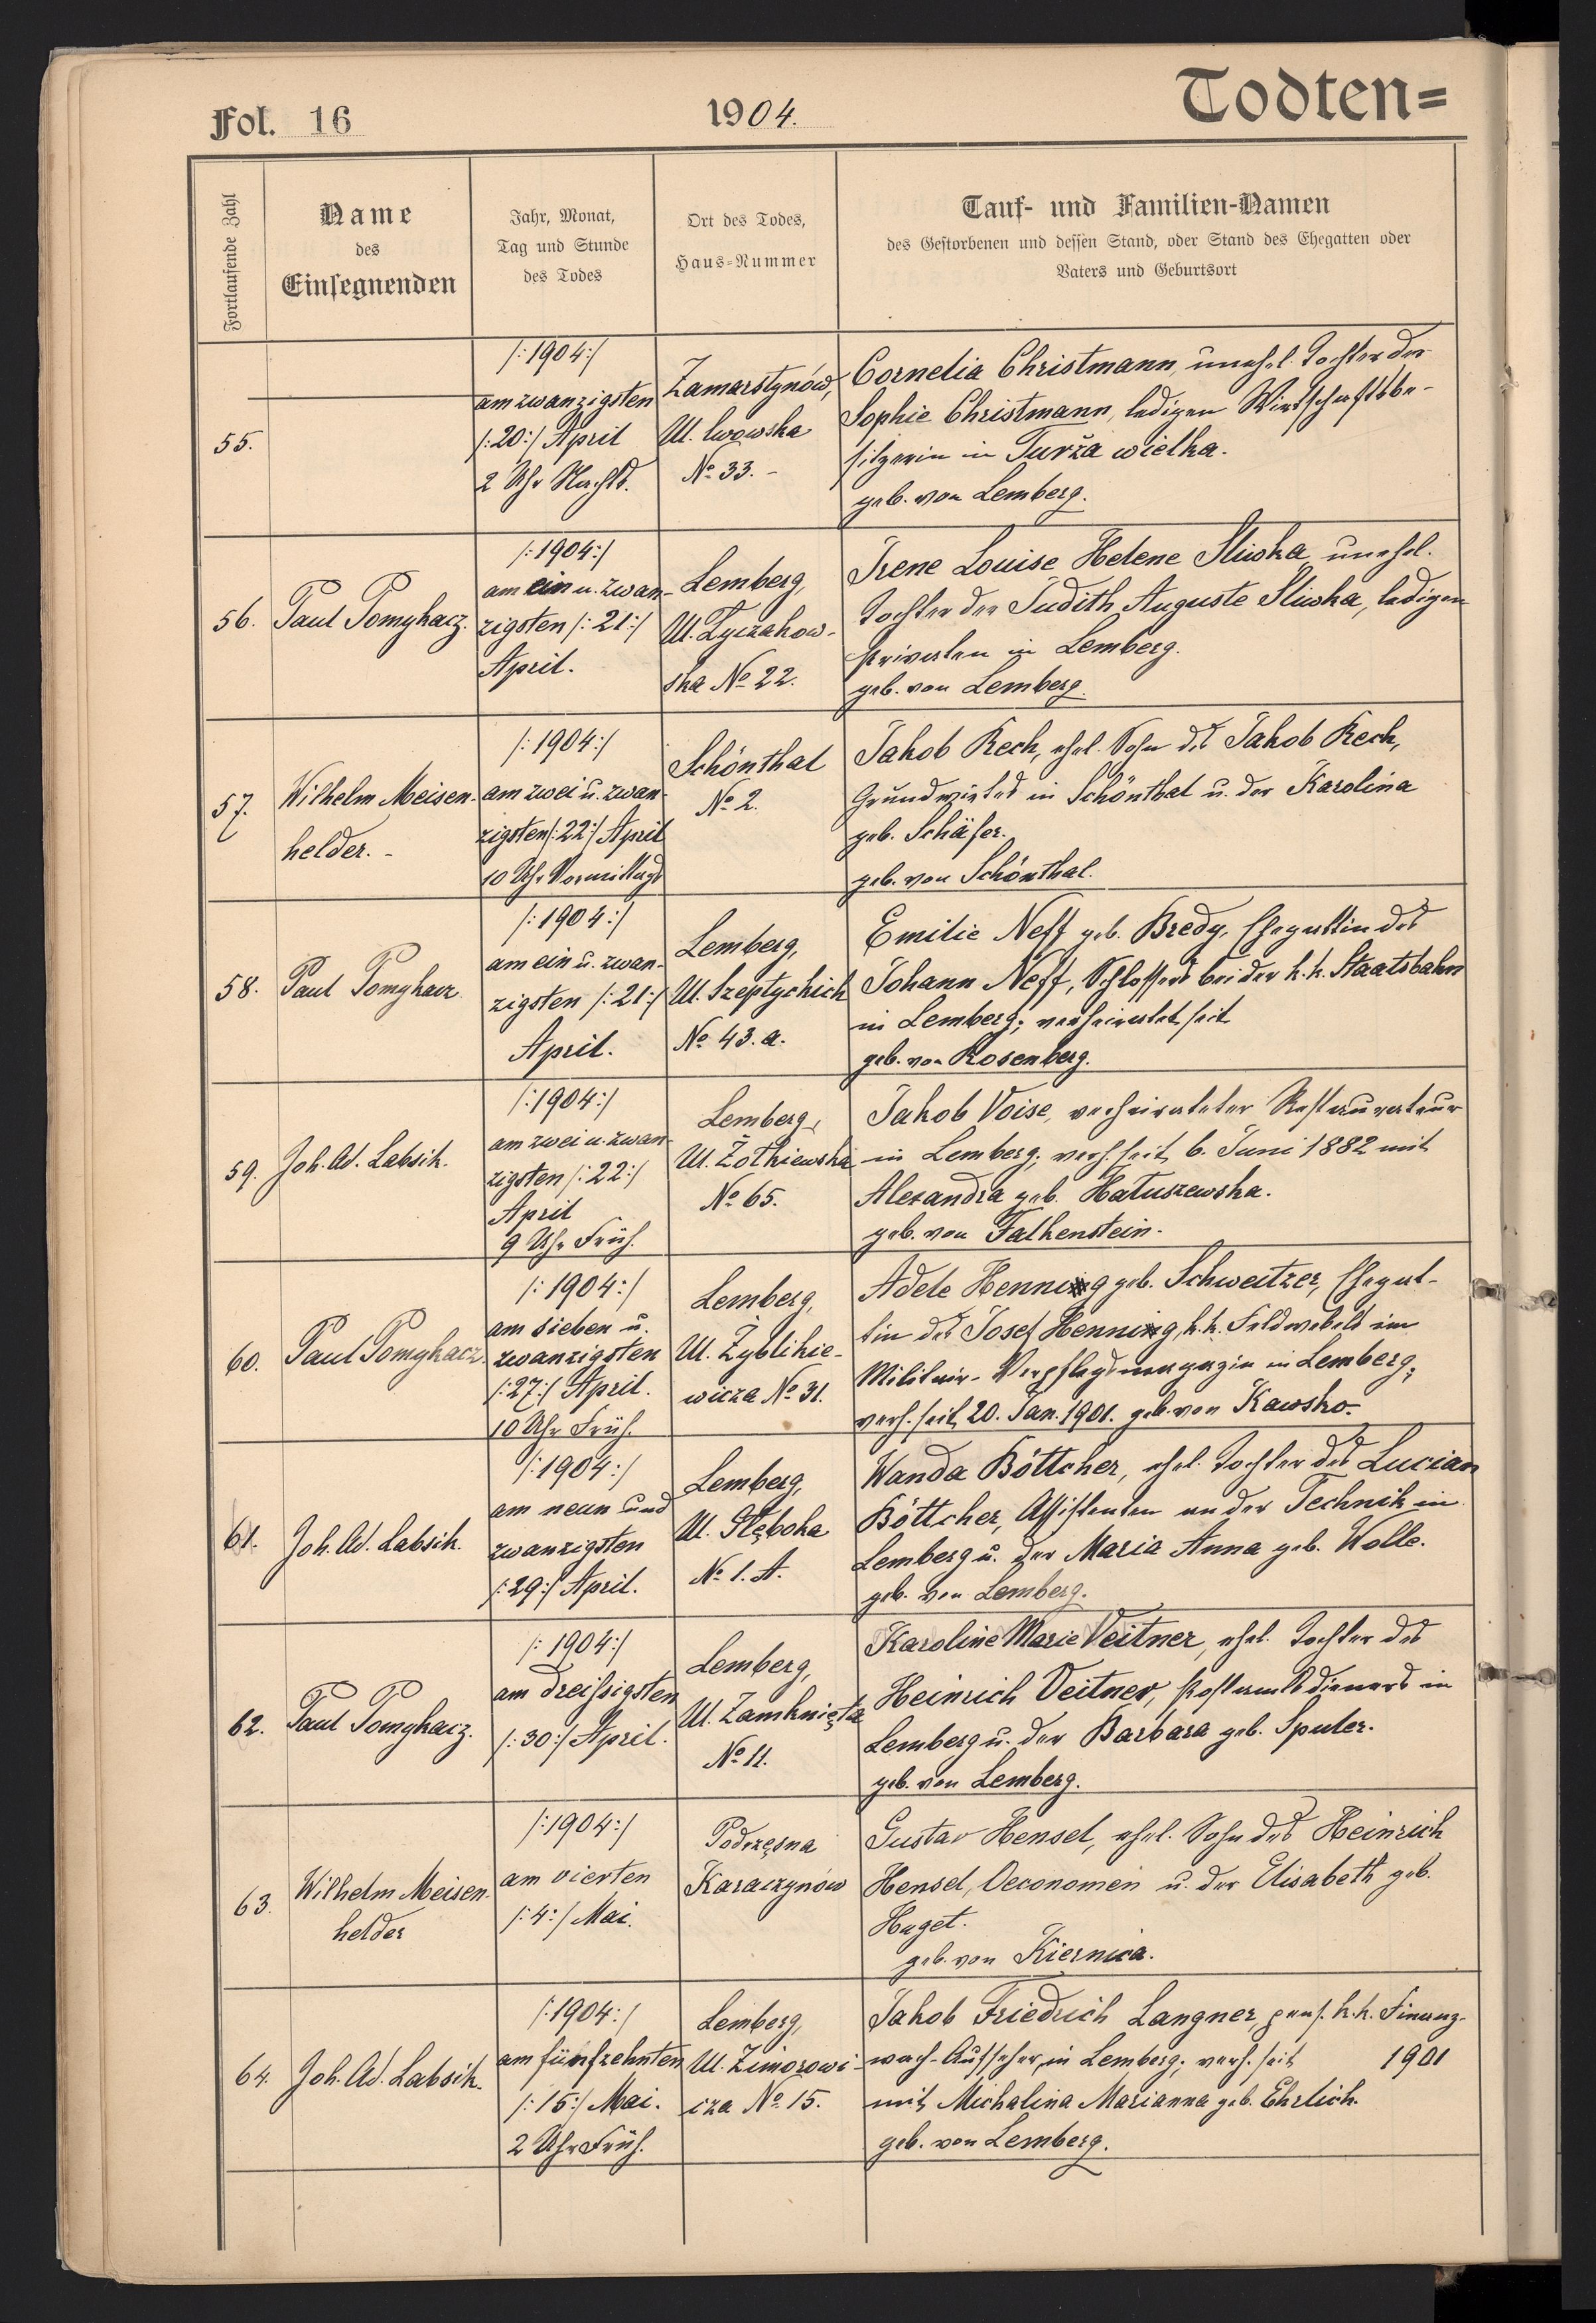 Fol. 16
1904.
Todten=
Fortlaufende Zahl
Name
des
Einsegnenden
Jahr, Monat,
Tag und Stunde
des Todes
Ort des Todes,
Haus-Nummer
Tauf- und Familien-Namen
des Gestorbenen und dessen Stand, oder Stand des Ehegatten oder
Vaters und Geburtsort
55.
/:1904:/
am zwanzigsten
/:20:/ April
2 Uhr Nachts.
Zamarstynów,
Ul. lwowska
No 33. -
Cornelia Christmann, unehel. Tochter der
Sophie Christmann, ledigen Wirtschaftsbe-
sitzerin in Turža wielka.
geb. von Lemberg.
56.
Paul Pomykacz.
/:1904:/
am ein u. zwan-
zigsten /:21:/
April.
Lemberg,
Ul. Łyczakow-
ska No 22.
Irene Louise Helene Sliwka, unehel.
Tochter der Judith Auguste Sliwka, ledigen
Privaten in Lemberg.
geb. von Lemberg.
57.
Wilhelm Meisen-
helder. -
/:1904:/
am zwei u. zwan-
zigsten /:22:/ April
10 Uhr Vormittags
Schönthal
No 2.
Jakob Rech, ehel. Sohn des Jakob Rech,
Grundwirtes in Schönthal u. der Karolina
geb. Schäfer.
geb. von Schönthal.
58.
Paul Pomykacz
/:1904:/
am ein u. zwan-
zigsten /:21:/
April.
Lemberg,
Ul. Szeptyckich
No 43. a.
Emilie Neff geb. Bredy, Ehegattin des
Johann Neff, Schlossers bei der k. k. Staatsbahn
in Lemberg; verheiratet seit
geb. von Rosenberg.
59.
Joh. Ad. Labsik.
/:1904:/
am zwei u. zwan-
zigsten /:22:/
April
9 Uhr Früh.
Lemberg,
Ul. Żołkiewska
No 65.
Jakob Voise, verheirateter Restaurateur
in Lemberg; verh. seit 6. Juni 1882 mit
Alexandra geb. Hatuszewska.
geb. von Falkenstein.
60.
Paul Pomykacz.
/:1904:/
am sieben u.
zwanzigsten
/:27:/ April.
10 Uhr Früh.
Lemberg,
Ul. Zyblikie-
wicza No 31.
Adele Hennig geb. Schweitzer, Ehegat-
tin des Josef Hennig, k. k. Feldwebels im
Militair-Verpflegsmagazin in Lemberg;
verh. seit 20. Jan. 1901. geb. von Kawsko.
61.
Joh. Ad. Labsik.
/:1904:/
am neun und
zwanzigsten
/:29:/ April.
Lemberg,
Ul. Głęboka
No 1. A.
Wanda Böttcher, ehel. Tochter des Lucian
Böttcher, Assistenten an der Technik in
Lemberg u. der Maria Anna geb. Wolle.
geb. von Lemberg.
62.
Paul Pomykacz.
/:1904:/
am dreissigsten
/:30:/ April.
Lemberg,
Ul. Zamknięta
No 11.
Karoline Marie Veitner, ehel. Tochter des
Heinrich Veitner, Postamtsdieners in
Lemberg u. der Barbara geb. Sputer.
geb. von Lemberg.
63.
Wilhelm Meisen-
helder
/:1904:/
am vierten
/:4:/ Mai.
Podrzęsna
Karaczynów
Gustav Hensel, ehel. Sohn des Heinrich
Hensel, Oeconomen u. der Elisabeth geb.
Huget.
geb. von Kiernica.
64.
Joh. Ad. Labsik.
/:1904:/
am fünfzehnten
/:15:/ Mai.
2 Uhr Früh.
Lemberg,
Ul. Zimorowi-
cza No 15.
Jakob Friedrich Langner, pens. k. k. Finanz-
wach-Aufseher, in Lemberg; verh. seit 1901
mit Michalina Marianna geb. Ehrlich.
geb. von Lemberg.